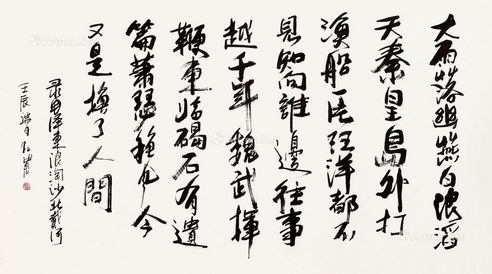 大雨落幽燕白浪滔
天秦皇島外打
漁船一片汪洋都不
見知向誰邊往事
越千年魏武揮
鞭東臨碣石有遺
篇蕭瑟秋風今
又是換了人間
录毛澤東浪淘沙北戴河
壬辰